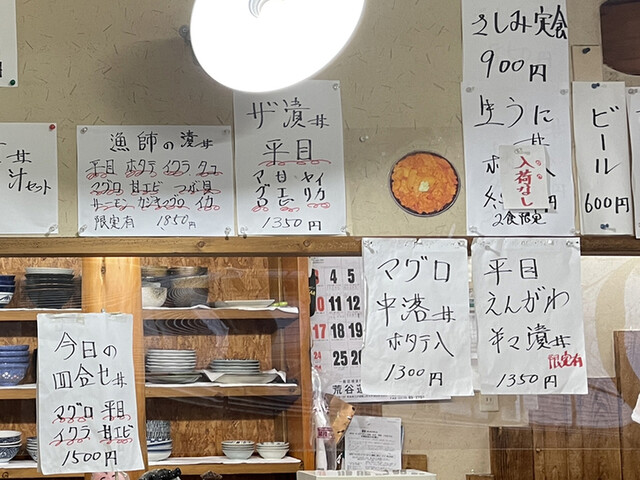 さしみ定食
900円
生うに丼
入荷なし
2食限定
ビール
600円
丼
汁セット
漁師の漬丼
平目 ホタテ イクラ タコ
マグロ 甘エビ つぶ貝
サーモン カジキマグロ イカ
限定有 1850円
ザ漬丼
平目
マグロ
甘エビ
ヤリイカ
1350円
マグロ
中落丼
ホタテ入
1300円
平目
えんがわ
半々漬丼
限定有
1350円
今日の
四合せ丼
マグロ 平目
イクラ 甘エビ
1500円
3
10 11 12
17 18 19
24 25 26